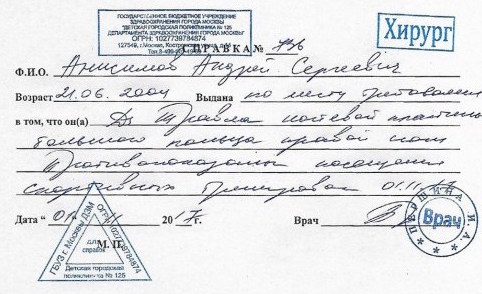 ГОСУДАРСТВЕННОЕ БЮДЖЕТНОЕ УЧРЕЖДЕНИЕ
ЗДРАВООХРАНЕНИЯ ГОРОДА МОСКВЫ
"ДЕТСКАЯ ГОРОДСКАЯ ПОЛИКЛИНИКА № 125
ДЕПАРТАМЕНТА ЗДРАВООХРАНЕНИЯ ГОРОДА МОСКВЫ"
ОГРН: 1027739784874
127549, г.Москва, Костромская улица
Хирург
СПРАВКА № 736
Ф.И.О. Анисимов Андрей Сергеевич
Возраст 21.06.2004 Выдана по месту требования
в том, что он(а) Ds Травма ногтевой пластины
большого пальца правой
Противопоказаны посещения
спортивных тренировок 01.11
Дата "01" 20 17 г. Врач
М. П.
ГБУЗ г. Москвы ДЗМ
ОГРН 1027739784874
для справок
Детская городская
поликлиника № 125
ПЕРШИНА И.А.
Врач